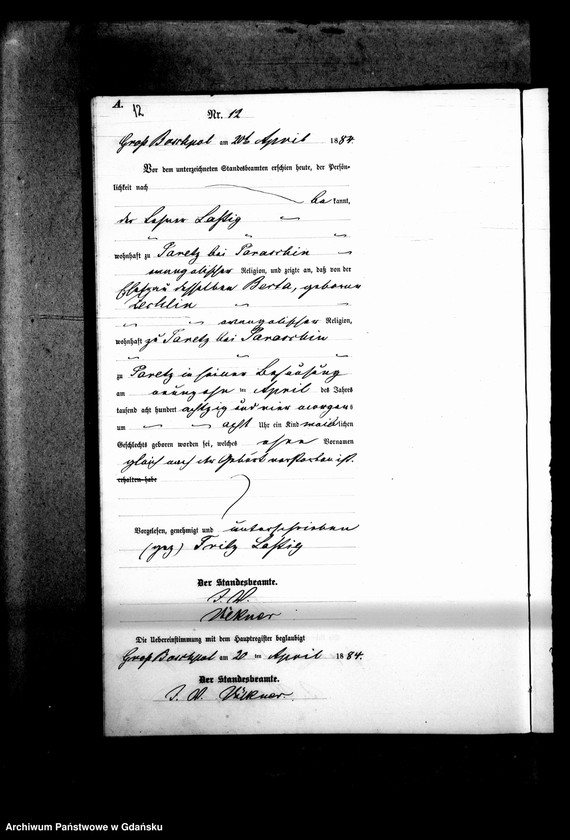 A.
12
Nr. 12
Groß Boschpol am 20t April 1884.
Vor dem unterzeichneten Standesbeamten erschien heute, der Persön-
lichkeit nach
bekannt,
der Lehrer Laßig
wohnhaft zu Paretz bei Paraschin
evangelischer Religion, und zeigte an, daß von der
Ehefrau desselben Berta, geboren
Zechlin
evangelischer Religion,
wohnhaft zu Paretz bei Paraschin
zu Paretz in seiner Behausung
am neunzehn April des Jahres
tausend acht hundert achtzig und vier morgens
um acht Uhr ein Kind männlichen
Geschlechts geboren worden sei, welches ohne Vornamen
gleich nach der Geburt verstorben ist.
erhalten habe
Vorgelesen, genehmigt und unterschrieben
(gez) Fritz Laßig
Der Standesbeamte.
I. V.
Völkner
Die Uebereinstimmung mit dem Hauptregister beglaubigt
Groß Boschpol am 20 ten April 1884.
Der Standesbeamte.
I. V. Völkner.
Archiwum Państwowe w Gdańsku